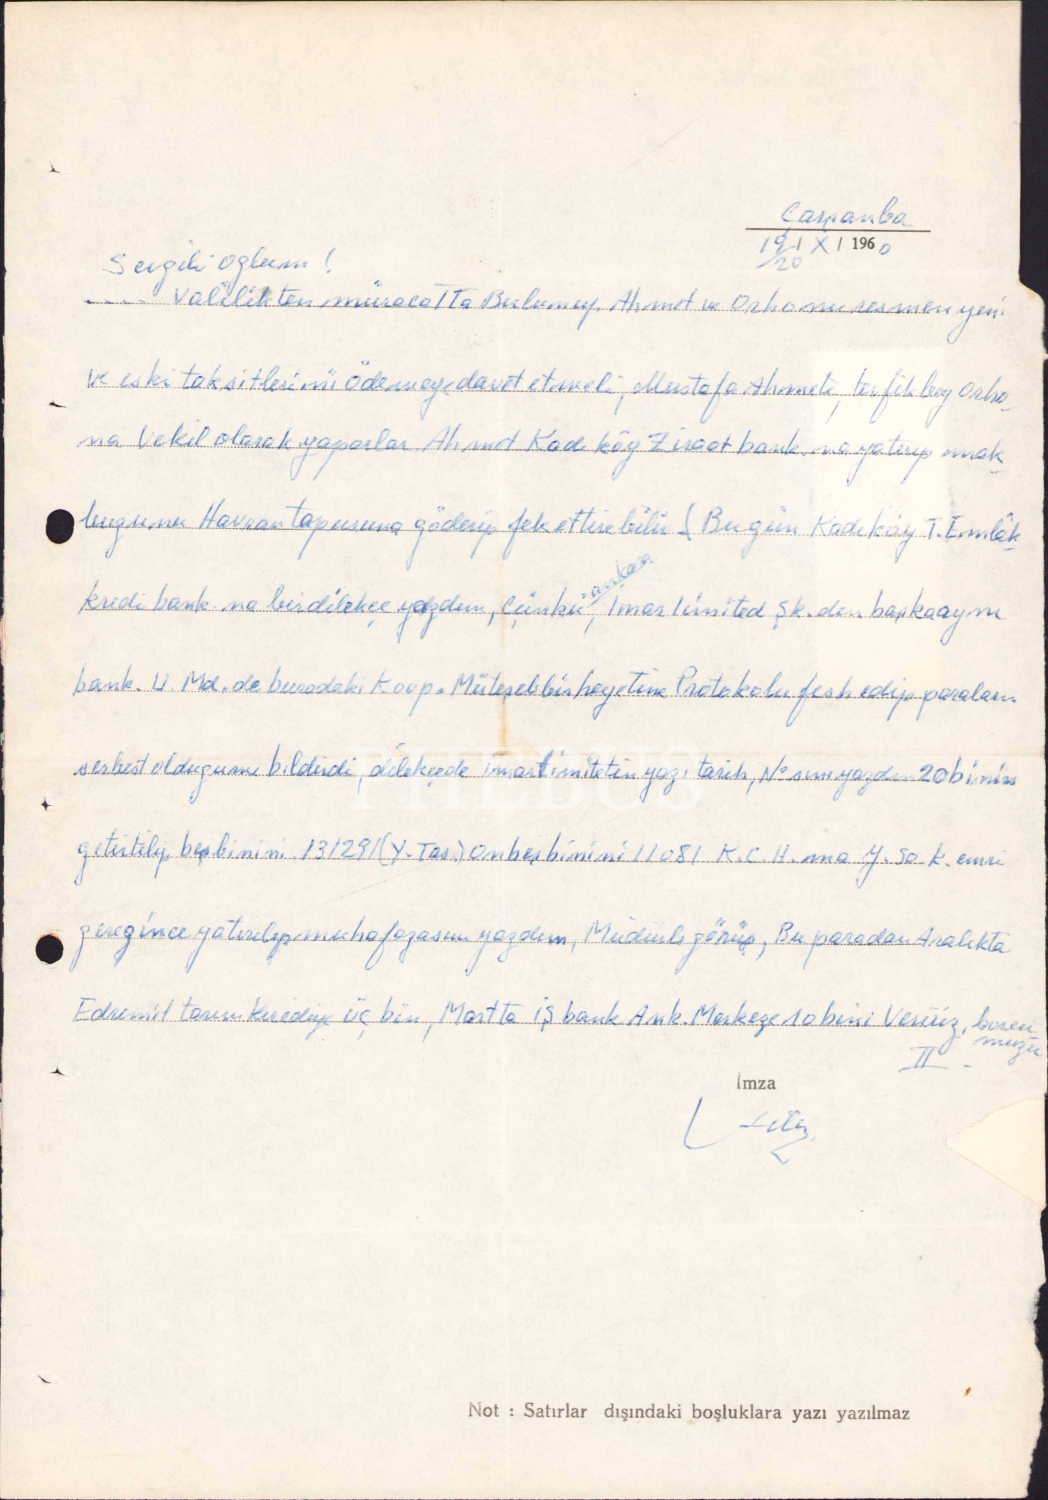 Çarşanba
19/20 / X / 1960
Sevgili oğlum!
.... Valilikten müracatta Bulumuş, Ahmet ve Orhanı resmen yeni
ve eski taksitlerini ödemeye davet etmeli, Mustafa Ahmete, tevfik bey Orha-
na Vekil olarak yaparlar Ahmet Kadıköy Ziraat bank. na yatırıp mak-
buzunu Havran tapusuna göderip fek ettirebilir. Bugün Kadıköy T. Emlâk
kredi bank. na bir dilekçe yazdım, çünkü, ankara İmar limited şk. den başka aynı
bank. U. Md. de buradaki Koop. Müteşebbis heyetine Protokolu fesh edip paraların
serbest olduğunu bildirdi, dilekçede imar limitetin yazı tarih, No sunu yazdım 20 binin
getirtilip beşbinini 131291 (Y. Tas.) onbeşbinini 11081 K. C. H. ma Y. Sa K. emri
gereğince yatırılıp muhafazasını yazdım, Müdürle görüş, Bu paradan Aralıkta
Edremit tarım krediye üç bin, Martta iş bank Ank. Merkeze 10 bini Veririz, borcu
muzu
II -
İmza
PHEBUS
Not : Satırlar dışındaki boşluklara yazı yazılmaz